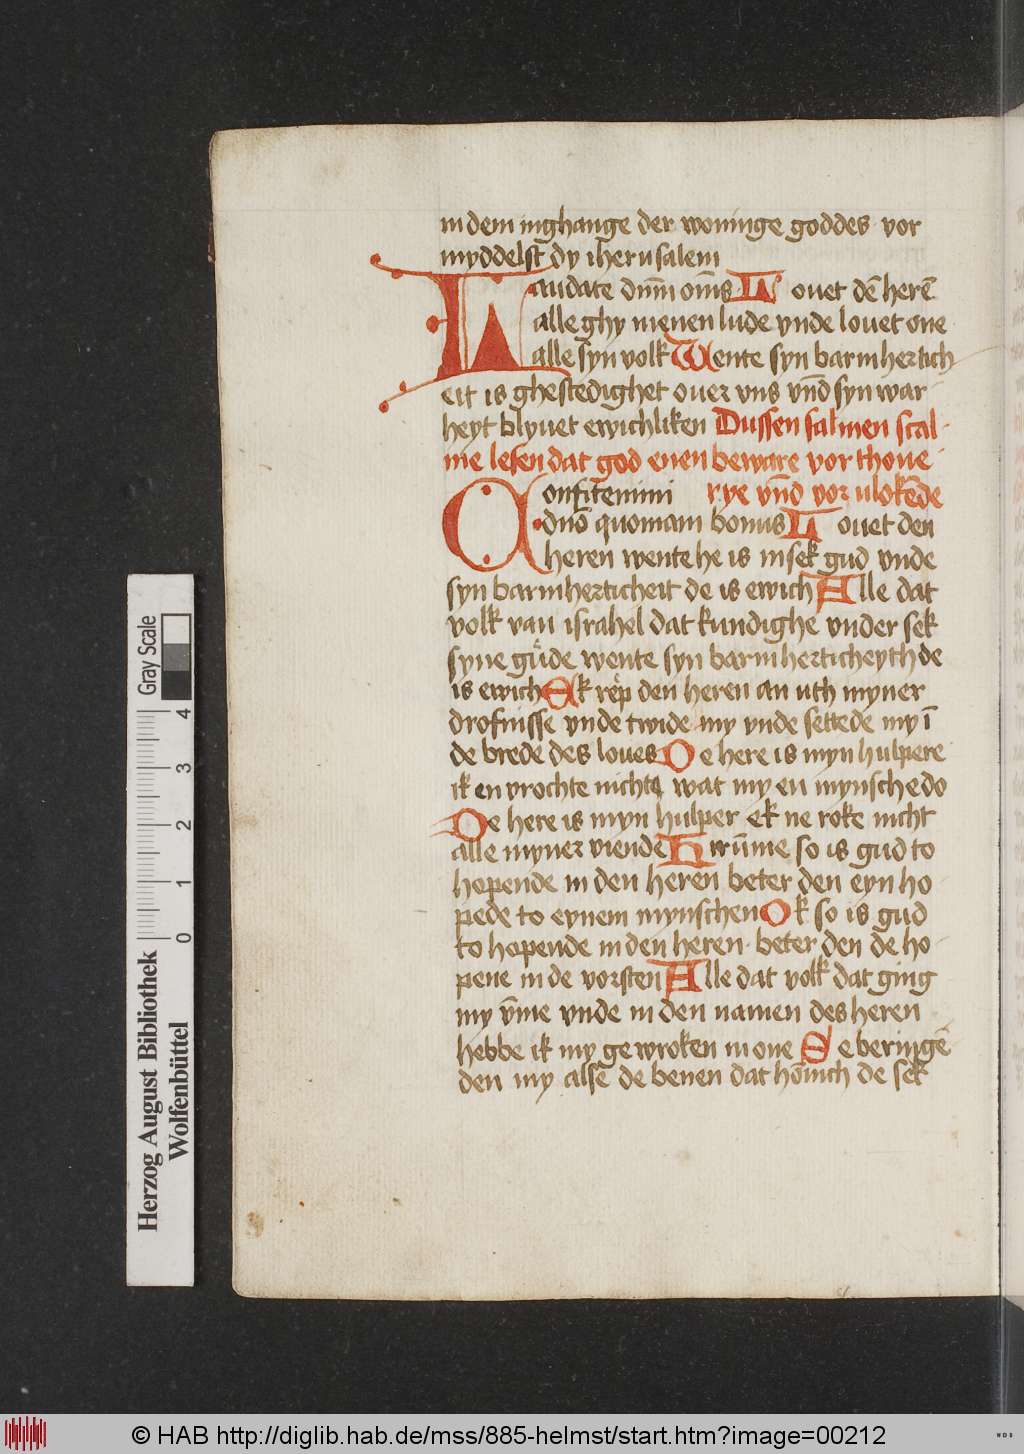 in dem inghange der woninge goddes vor
myddelst dy iherusalem
Laudate dnm̄ om̄s Louet dē herē
alle ghy menen lude vnde louet one
alle syn volk Wente syn barmhertich
eit is ghestedighet ouer vns vn̄d syn war
heyt blyuet ewichliken Dussen salmen scal
me lesen dat god enen beware vor thoue
Confitemini rye vn̄d vor vlokēde
dn̄o quoniam bonus Louet den
heren wente he is in sek gud vnde
syn barmherticheit de is ewich Alle dat
volk van israhel dat kundighe vnder sek
syne gůde wente syn barmherticheyth de
is ewich Ek rep den heren an uth myner
drofnisse vnde twide my vnde settede my ī
de brede des loues De here is myn hulpere
ik en vrochte nicht wat my en mynsche do
De here is myn hulper ek ne roke nicht
alle myner viende Hirūme so is gud to
hopende in den heren beter den eyn ho
pede to eynem mynschen Ok so is gud
to hopende in den heren beter den de ho
pene in de vorsten Alle dat volk dat ging
my v̄me vnde in den namen des heren
hebbe ik my gewroken in one Se beringē
den my alse de benen dat hōnich de sek
Gray Scale
4 3 2 1 0
Herzog August Bibliothek
Wolfenbüttel
© HAB http://diglib.hab.de/mss/885-helmst/start.htm?image=00212
WDB